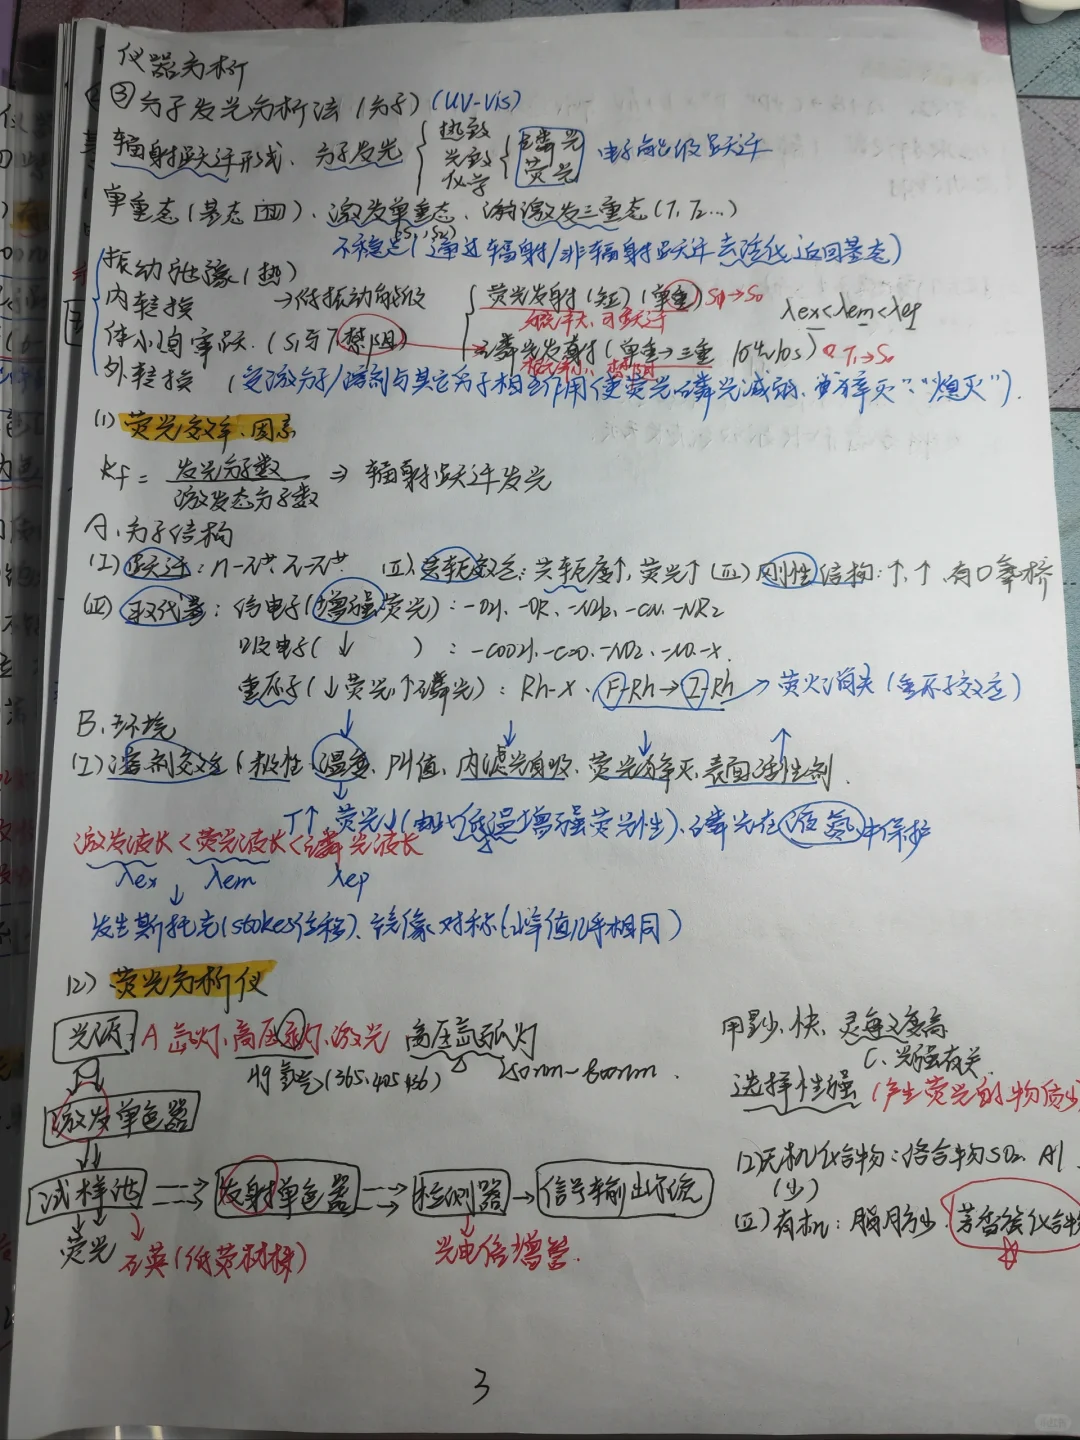 仪器分析
③分子发光分析法(分子)(UV-Vis)
辐射跃迁形成、分子发光
热致
光致
化学
磷光
荧光
电子能级跃迁
单重态(基态 )、激发单重态、 激发三重态(T₁ T₂...)
(S₁, S₂)
不稳定(通过辐射/非辐射跃迁去活化返回基态)
振动弛豫(热)
内转换 →低振动能级
体系间窜跃.(S₁与T₁禁阻)
外转换 (受激分子/溶剂与其它分子相互作用使荧光磷光减弱. "猝灭"、"熄灭").
荧光发射(短)(单重) S₁→S₀
概率大、可跃迁
磷光发射(单重→三重 10⁻⁴~10s) T₁→S₀
概率小、禁阻
λex<λem<λep
(1) 荧光效率、因素
Kf = 发光分子数 / 激发态分子数 ⇒ 辐射跃迁发光
A.分子结构
(I) 跃迁:n-π*. π-π* (II).共轭效应:共轭度↑,荧光↑ (III) 刚性结构:↑,↑,有O氧桥
(四) 取代基:给电子(增强荧光):-OH.-OR.-NH₂.-CN.-NR₂
吸电子( ↓ ):-COOH.-C=O.-NO₂.-NO.-X.
重原子(↓荧光,↑磷光):Rh-X. F-Rh→I-Rh → 荧火消失(重原子效应)
B.环境
(I) 溶剂效应(极性.温度、PH值,内滤光自吸、荧光猝灭,表面活性剂.
T↑ 荧光↓(由此低温增强荧光性)、磷光在液氮中保护
激发波长<荧光波长<磷光波长
λex λem λep
发生斯托克(stokes位移)、镜像对称(峰值几乎相同)
(2) 荧光分析仪
光源:A 氙灯、高压汞灯.激光 高压氙弧灯
Hg蒸气(365.405.436) 250nm-800nm.
激发单色器
试样池
发射单色器
检测器
信号输出系统
荧光
石英(低荧材料)
光电倍增管.
用量少、快、灵敏度高
C、光强有关
选择性强(产生荧光的物质少
(I)无机化合物:络合物SO₂. Al
(少)
(II)有机:脂肪少.芳香族化合物
3